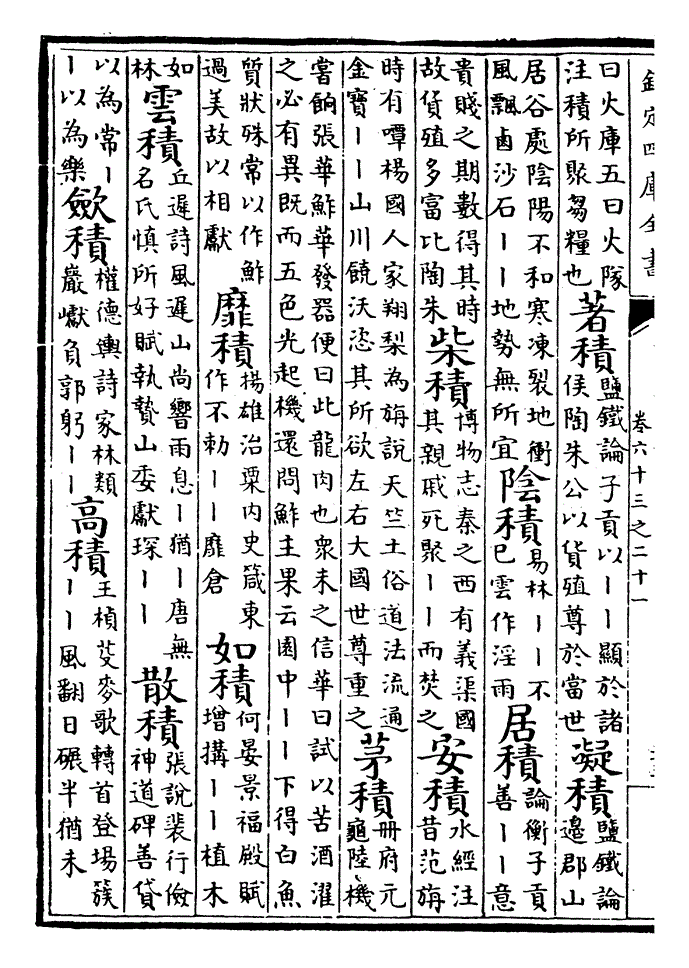 欽定四庫全書
卷六十三之二十一
曰火庫五曰火隊
注積所聚芻糧也
著積
鹽鐵論子貢以丨丨顯於諸
侯陶朱公以貨殖尊於當世
凝積
鹽鐵論
邊郡山
居谷處陰陽不和寒凍裂地衝
風飄鹵沙石丨丨地勢無所宜
陰積
易林丨丨不
已雲作淫雨
居積
論衡子貢
善丨丨意
貴賤之期數得其時
故貨殖多富比陶朱
柴積
博物志秦之西有義渠國
其親戚死聚丨丨而焚之
安積
水經注
昔范旃
時有嘾楊國人家翔梨為旃說天竺土俗道法流通
金寶丨丨山川饒沃恣其所欲左右大國世尊重之
茅積
冊府元
龜陸機
嘗餉張華鮓華發器便曰此龍肉也衆未之信華曰試以苦酒濯
之必有異既而五色光起機還問鮓主果云園中丨丨下得白魚
質狀殊常以作鮓
過美故以相獻
靡積
揚雄治粟内史箴東
作不勅丨丨靡倉
如積
何晏景福殿賦
增搆丨丨植木
如
林
雲積
丘遲詩風遲山尚響雨息丨猶丨唐無
名氏慎所好賦執贄山委獻琛丨丨
散積
張說裴行儉
神道碑善貸
以為常丨
丨以為樂
歛積
權德輿詩家林類
巖巘負郭躬丨丨
高積
王楨芟麥歌轉首登場簇
丨丨風翻日碾半猶未